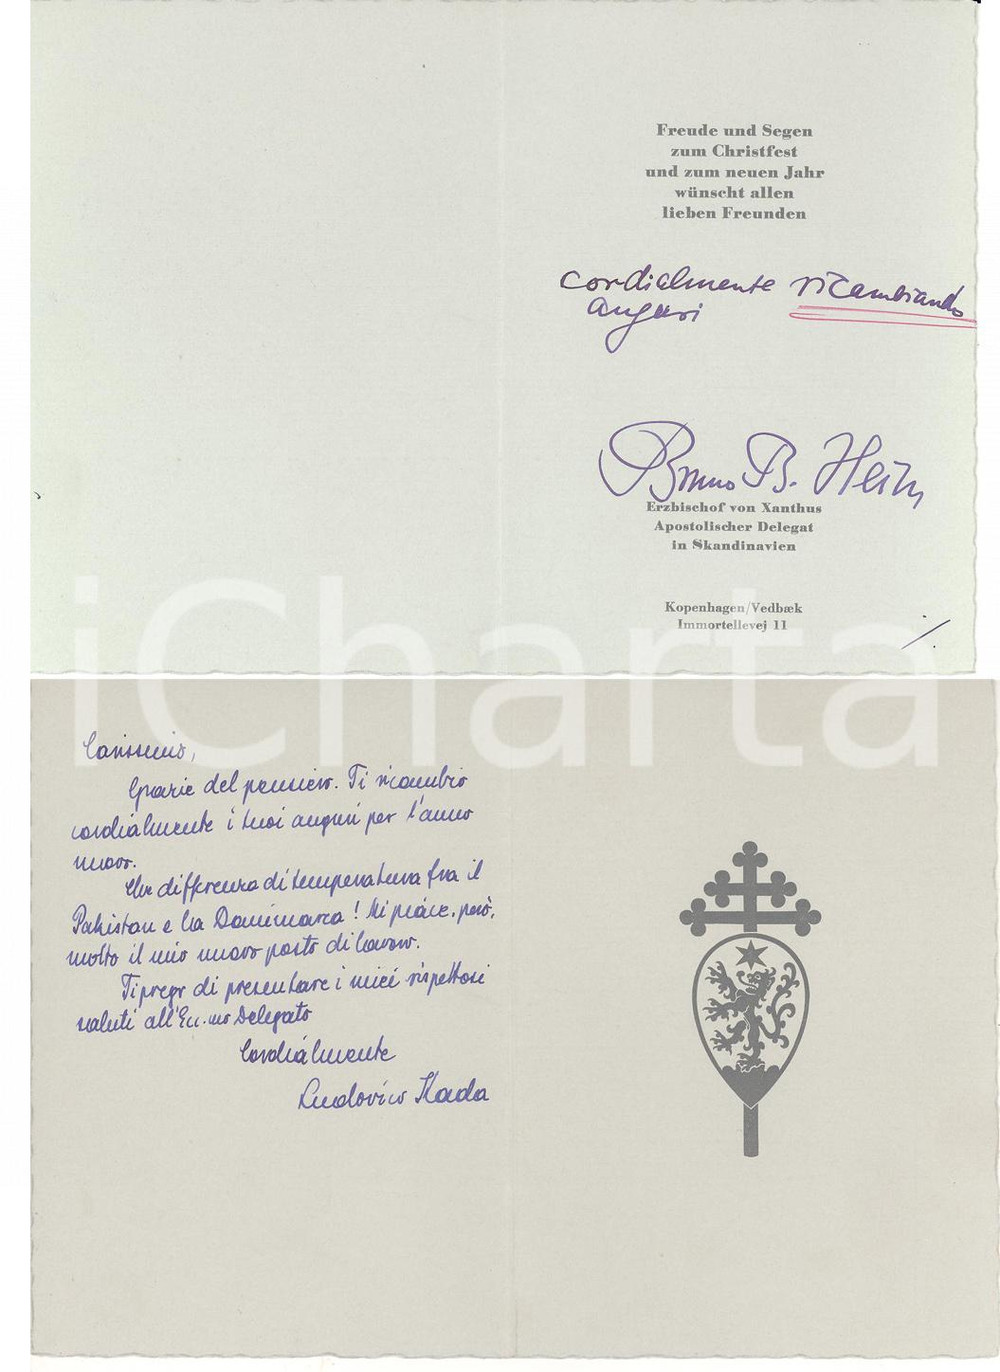 Freude und Segen
zum Christfest
und zum neuen Jahr
wünscht allen
lieben Freunden
cordialmente ricambiando
auguri
Bruno B. Heim
Erzbischof von Xanthus
Apostolischer Delegat
in Skandinavien
Kopenhagen/Vedbæk
Immortellevej 11
iCharta
Carissimo,
Grazie del pensiero. Ti ricambio
cordialmente i tuoi auguri per l'anno
nuovo.
Che differenza di temperatura fra il
Pakistan e la Danimarca! Mi piace, però,
molto il mio nuovo posto di lavoro.
Ti prego di presentare i miei rispettosi
saluti all'Ecc.mo Delegato
Cordialmente
Ludovico Kada